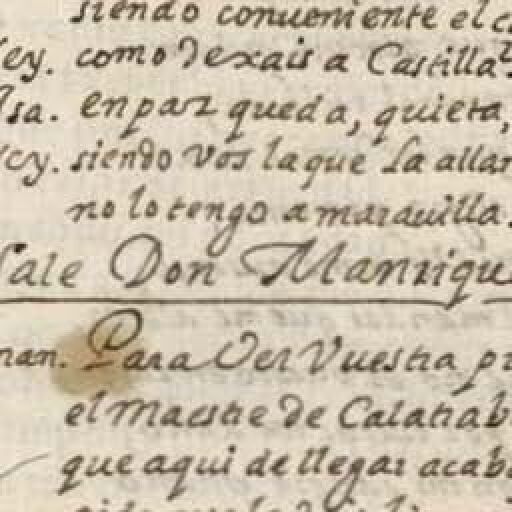 siendo conueniente el
ey. como dexais a Castilla
sa. en paz queda, quieta,
ey. siendo vos la que la allan
no lo tengo a marauilla.
Sale Don Manrique
man. Para Ver Vuestra pr
el Maestre de Calatrab
que aqui de llegar acaba